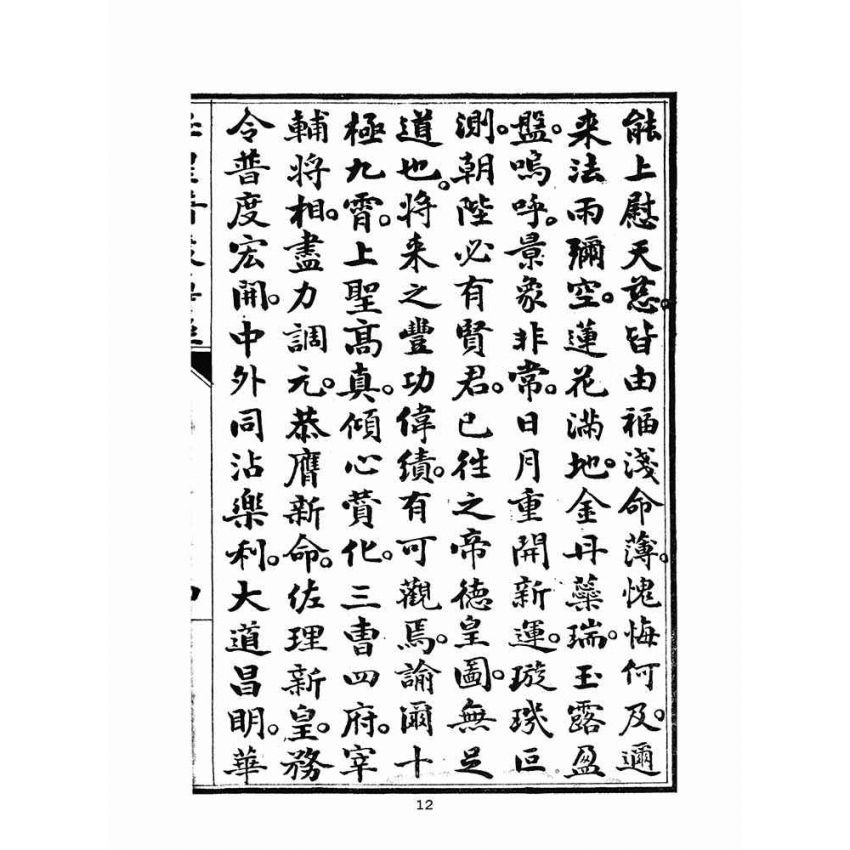 能上慰天慈。皆由福淺命薄。愧悔何及。邇
来法雨彌空。蓮花滿地。金丹藥瑞。玉露盈
盤。嗚呼。景象非常。日月重開新運。璇璣叵
測。朝陛必有賢君。已往之帝德皇圖。無足
道也。将来之豐功偉績。有可觀焉。諭爾十
極九霄。上聖高真。傾心贊化。三曹四府。宰
輔将相。盡力調元。恭膺新命。佐理新皇。務
令普度宏開。中外同沾樂利。大道昌明。華
12